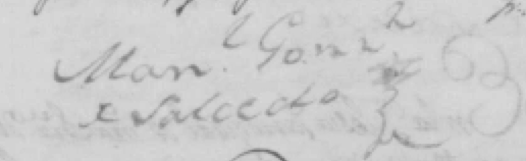 Man.l Gonz.z
Salcedo